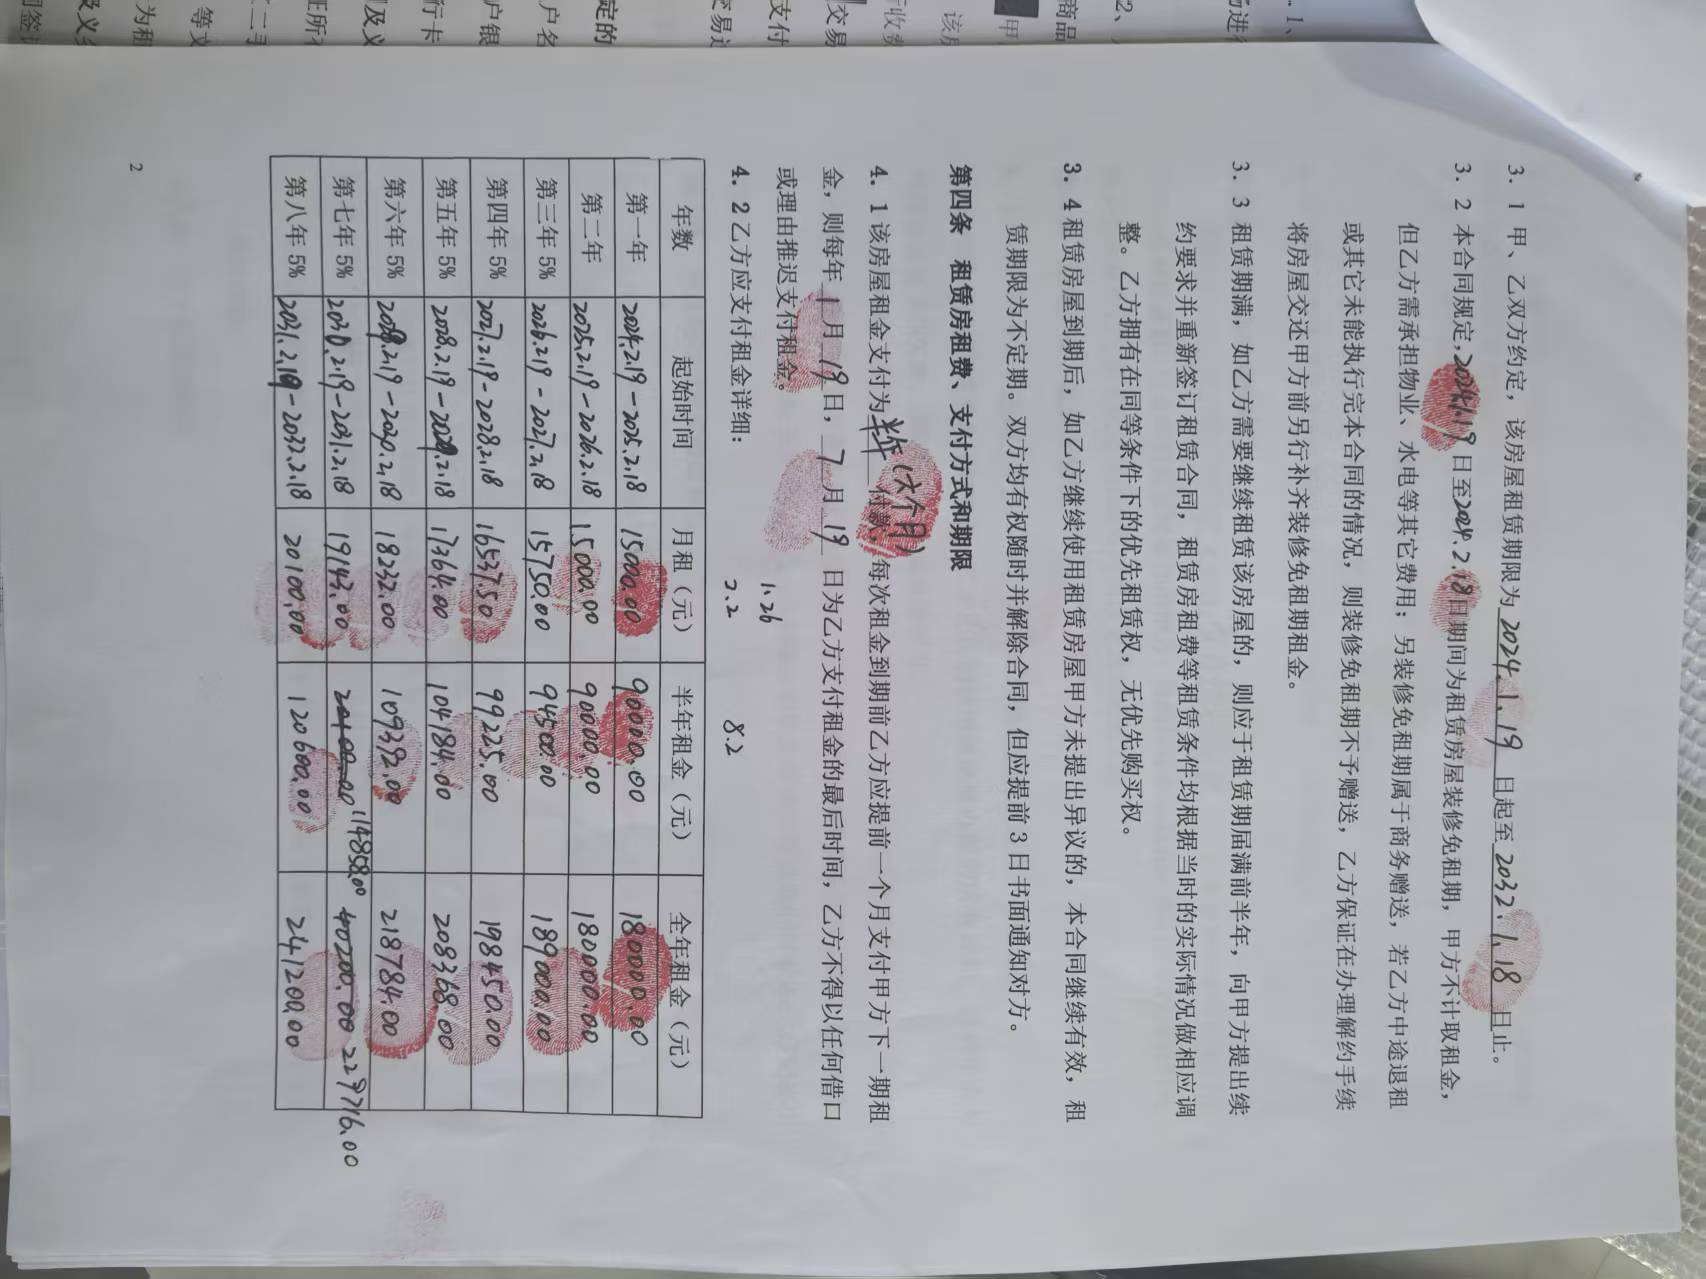 3. 1 甲、乙双方约定, 该房屋租赁期限为 2024.1.19 日起至 2032.1.18 日止。
3. 2 本合同规定,2024.1.19 日至2024.2.18日期间为租赁房屋装修免租期, 甲方不计取租金,
但乙方需承担物业、水电等其它费用; 另装修免租期属于商务赠送, 若乙方中途退租
或其它未能执行完本合同的情况, 则装修免租期不予赠送, 乙方保证在办理解约手续
将房屋交还甲方前另行补齐装修免租期租金。
3. 3 租赁期满, 如乙方需要继续租赁该房屋的, 则应于租赁期届满前半年, 向甲方提出续
约要求并重新签订租赁合同, 租赁房租费等租赁条件均根据当时的实际情况做相应调
整。乙方拥有在同等条件下的优先租赁权, 无优先购买权。
3. 4 租赁房屋到期后, 如乙方继续使用租赁房屋甲方未提出异议的, 本合同继续有效, 租
赁期限为不定期。双方均有权随时并解除合同, 但应提前 3 日书面通知对方。
第四条 租赁房租费、支付方式和期限
4. 1 该房屋租金支付为半年(六个月)付款, 每次租金到期前乙方应提前一个月支付甲方下一期租
金, 则每年 1 月 19 日, 7 月 19 日为乙方支付租金的最后时间, 乙方不得以任何借口
或理由推迟支付租金。
1.26
4. 2 乙方应支付租金详细: 2.2 8.2
年数 起始时间 月租（元） 半年租金（元） 全年租金（元）
第一年 2024.2.19-2025.2.18 15000.00 90000.00 180000.00
第二年 2025.2.19-2026.2.18 15000.00 90000.00 180000.00
第三年 5% 2026.2.19-2027.2.18 15750.00 94500.00 189000.00
第四年 5% 2027.2.19-2028.2.18 16537.50 99225.00 198450.00
第五年 5% 2028.2.19-2029.2.18 17364.00 104184.00 208368.00
第六年 5% 2029.2.19-2030.2.18 18232.00 109392.00 218784.00
第七年 5% 2030.2.19-2031.2.18 19143.00 201100.00 114858.00 402200.00 229716.00
第八年 5% 2031.2.19-2032.2.18 20100.00 120600.00 241200.00
2